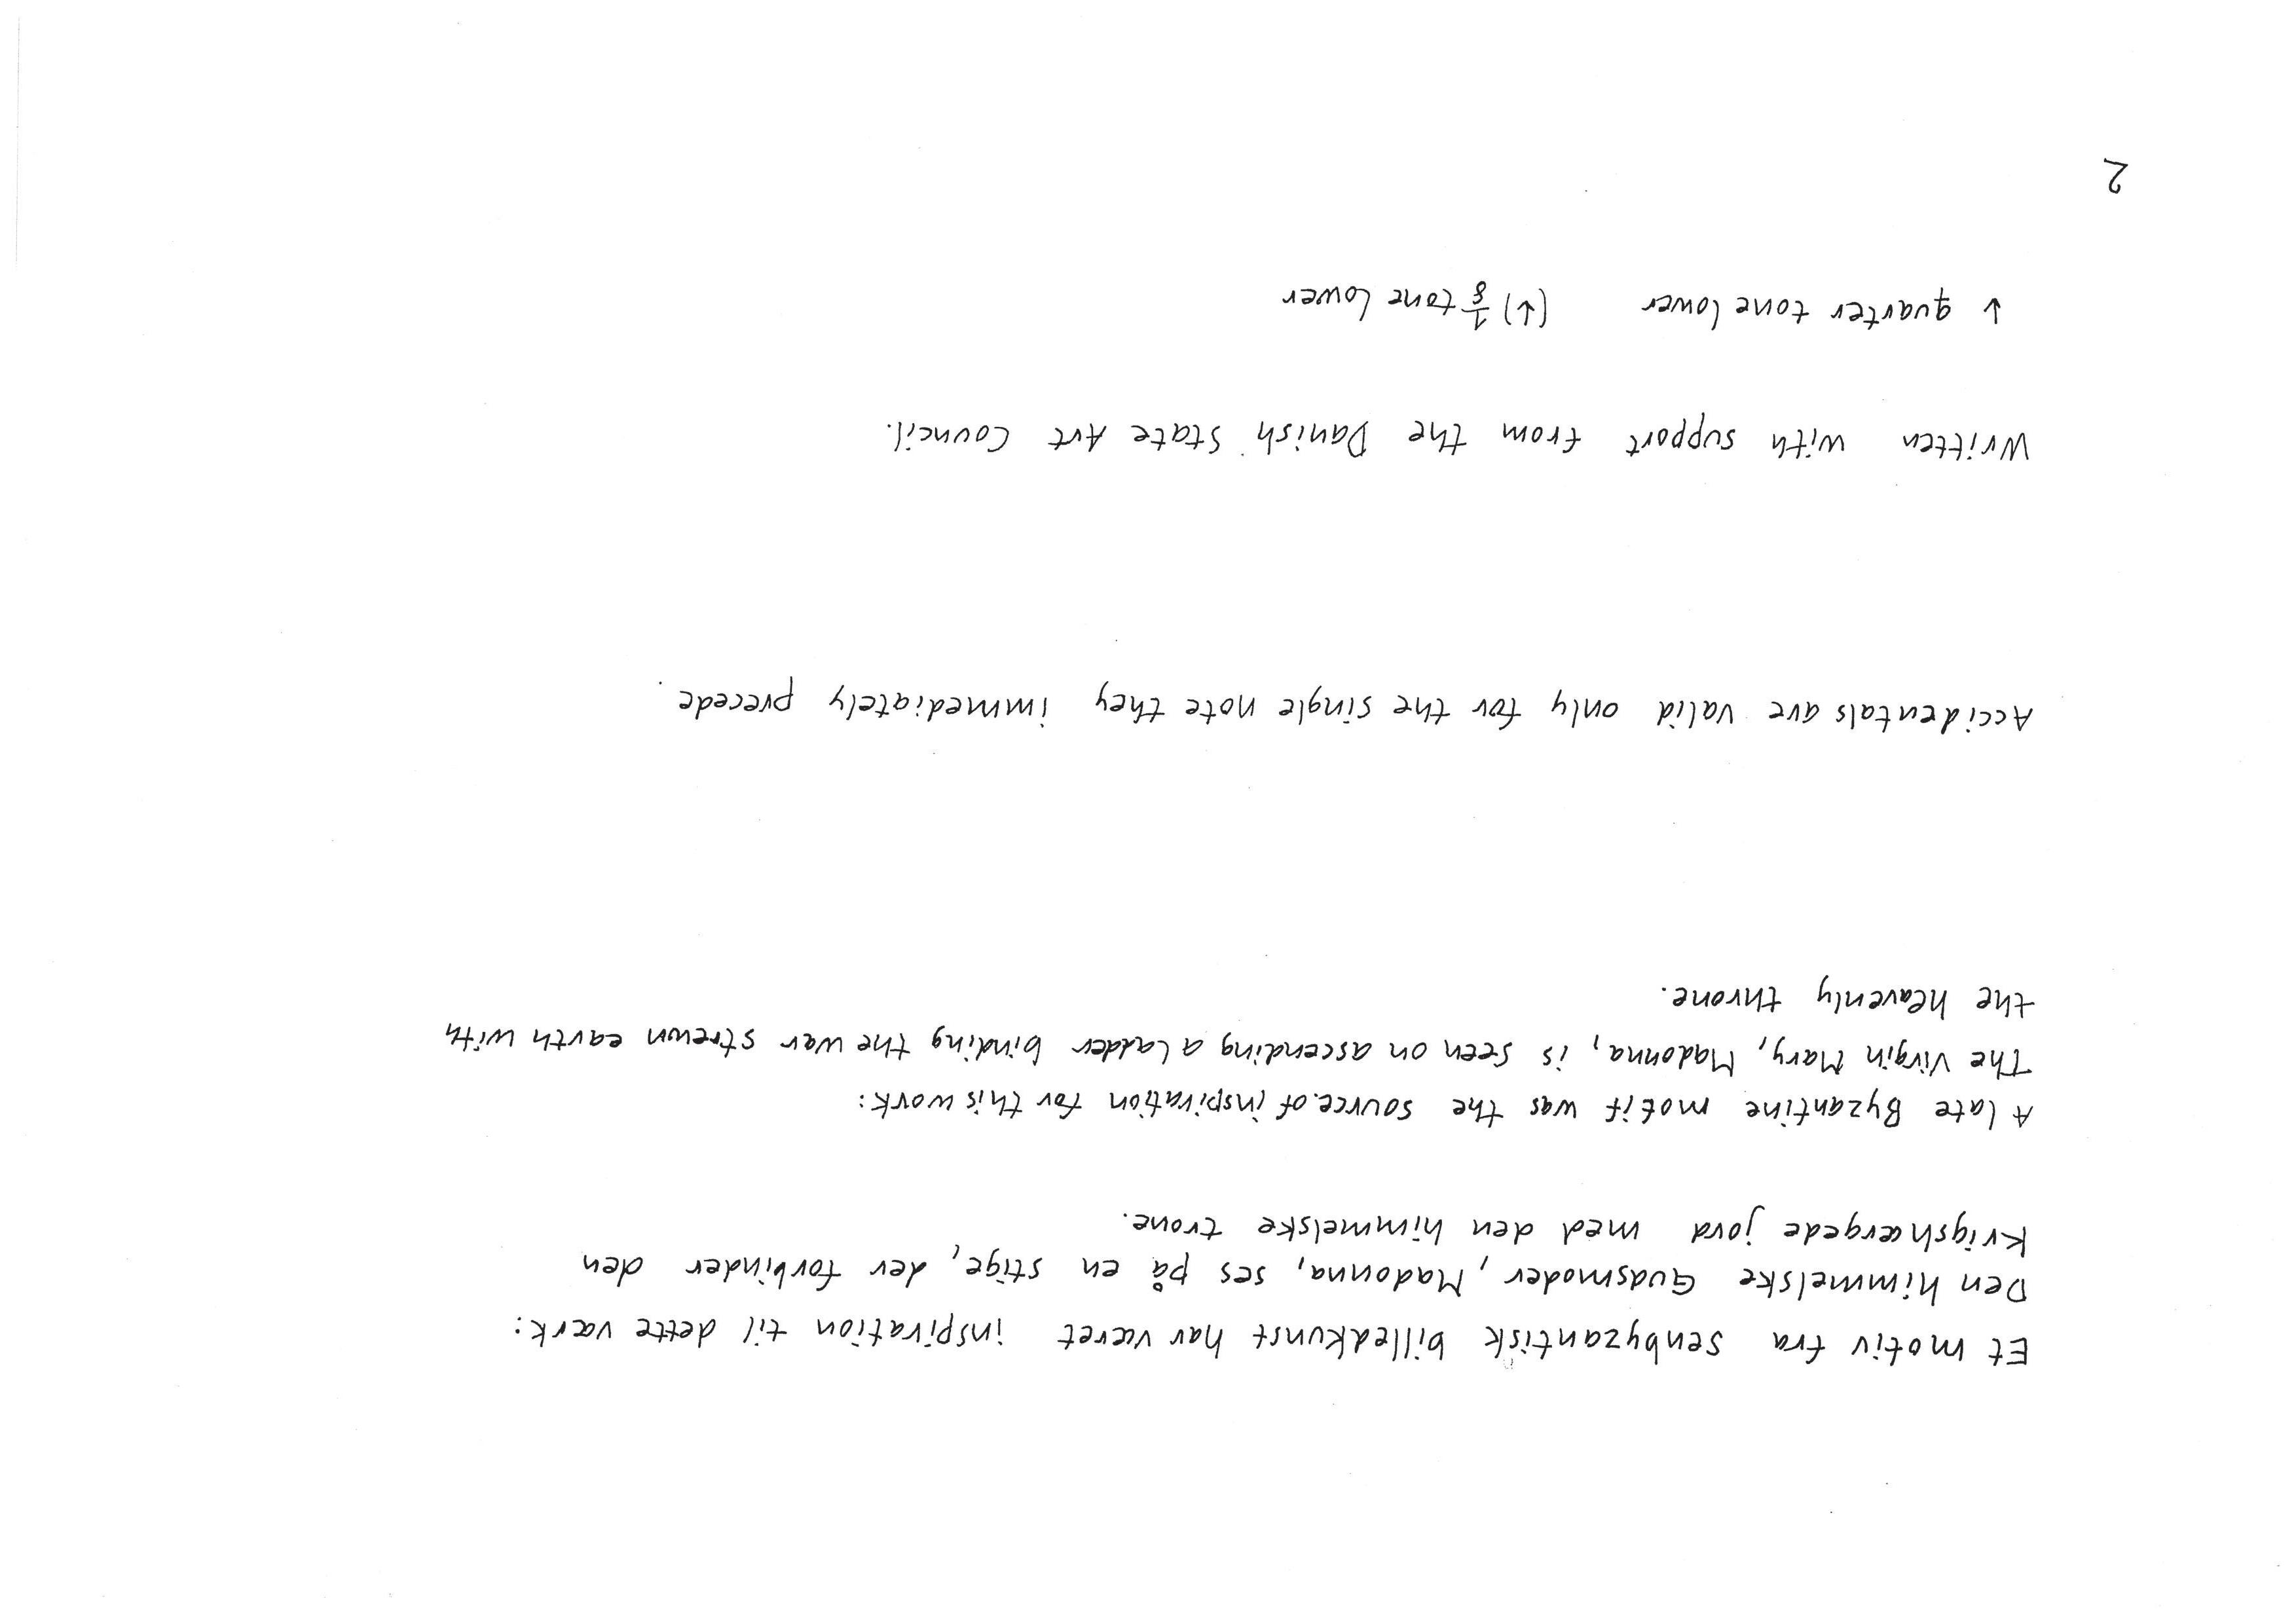 Et motiv fra senbyzantisk billedkunst har været inspiration til dette værk:
Den himmelske Gudsmoder, Madonna, ses på en stige, der forbinder den
Krigshærgede jord med den himmelske trone.
A late Byzantine motif was the source of inspiration for this work:
The Virgin Mary, Madonna, is seen on ascending a ladder binding the war strewn earth with
the heavenly throne.
Accidentals are valid only for the single note they immediately precede.
Written with support from the Danish State Art Council.
↓ quarter tone lower (↓) 1/8 tone lower
2